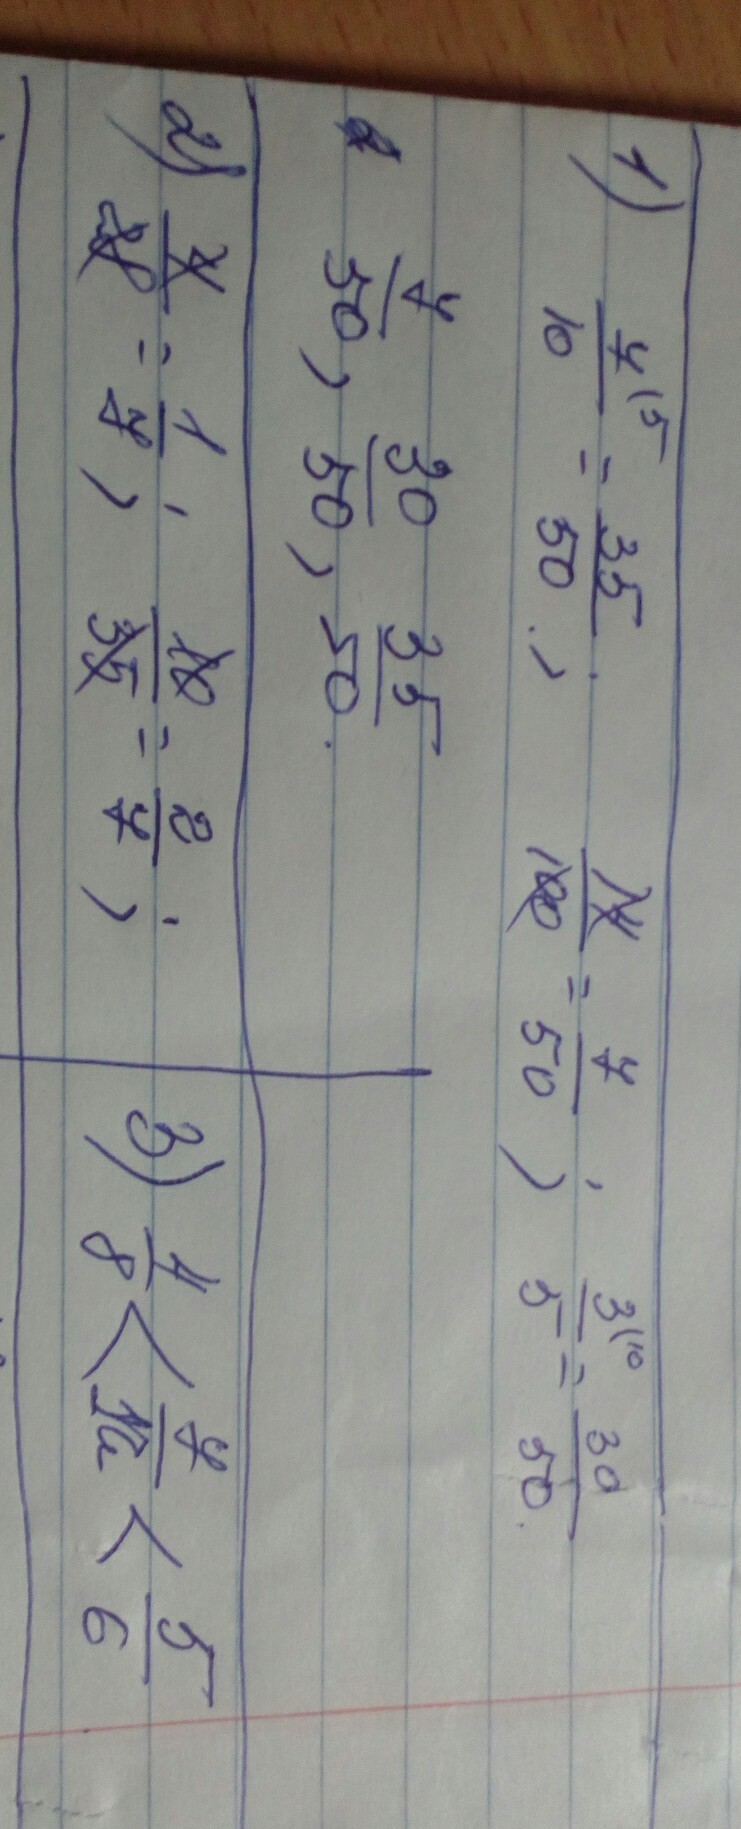 1) 7(5/10 = 35/50; 14/100 = 7/50; 3(10/5 = 30/50.
7/50, 30/50, 35/50.
2) 4/28 = 1/7; 10/35 = 2/7;
3) 4/8 < 7/12 < 5/6